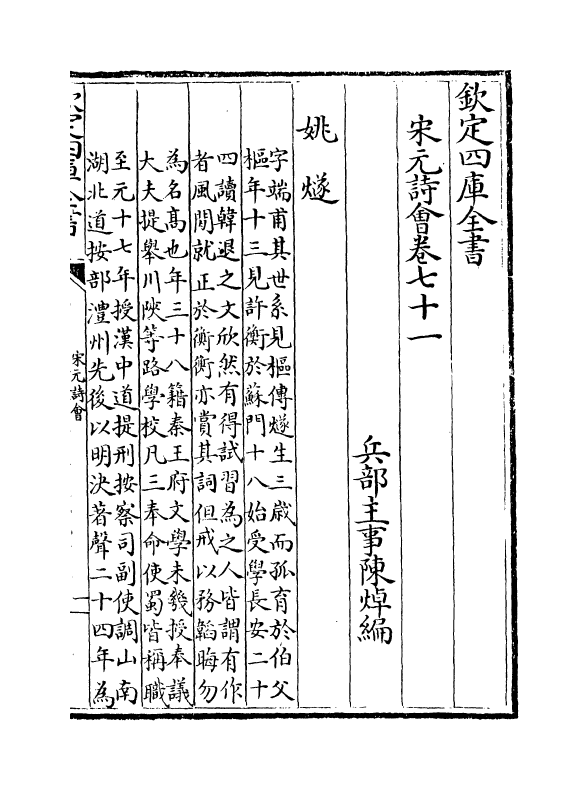 欽定四庫全書
宋元詩會卷七十一
兵部主事陳焯編
姚燧
字端甫其世系見樞傳燧生三歲而孤育於伯父
樞年十三見許衡於蘇門十八始受學長安二十
四讀韓退之文欣然有得試習為之人皆謂有作
者風閒就正於衡衡亦賞其詞但戒以務韜晦勿
為名髙也年三十八籍秦王府文學未幾授奉議
大夫提舉川陜等路學校凡三奉命使蜀皆稱職
至元十七年授漢中道提刑按察司副使調山南
湖北道按部澧州先後以明決著聲二十四年為
宋元詩會
一